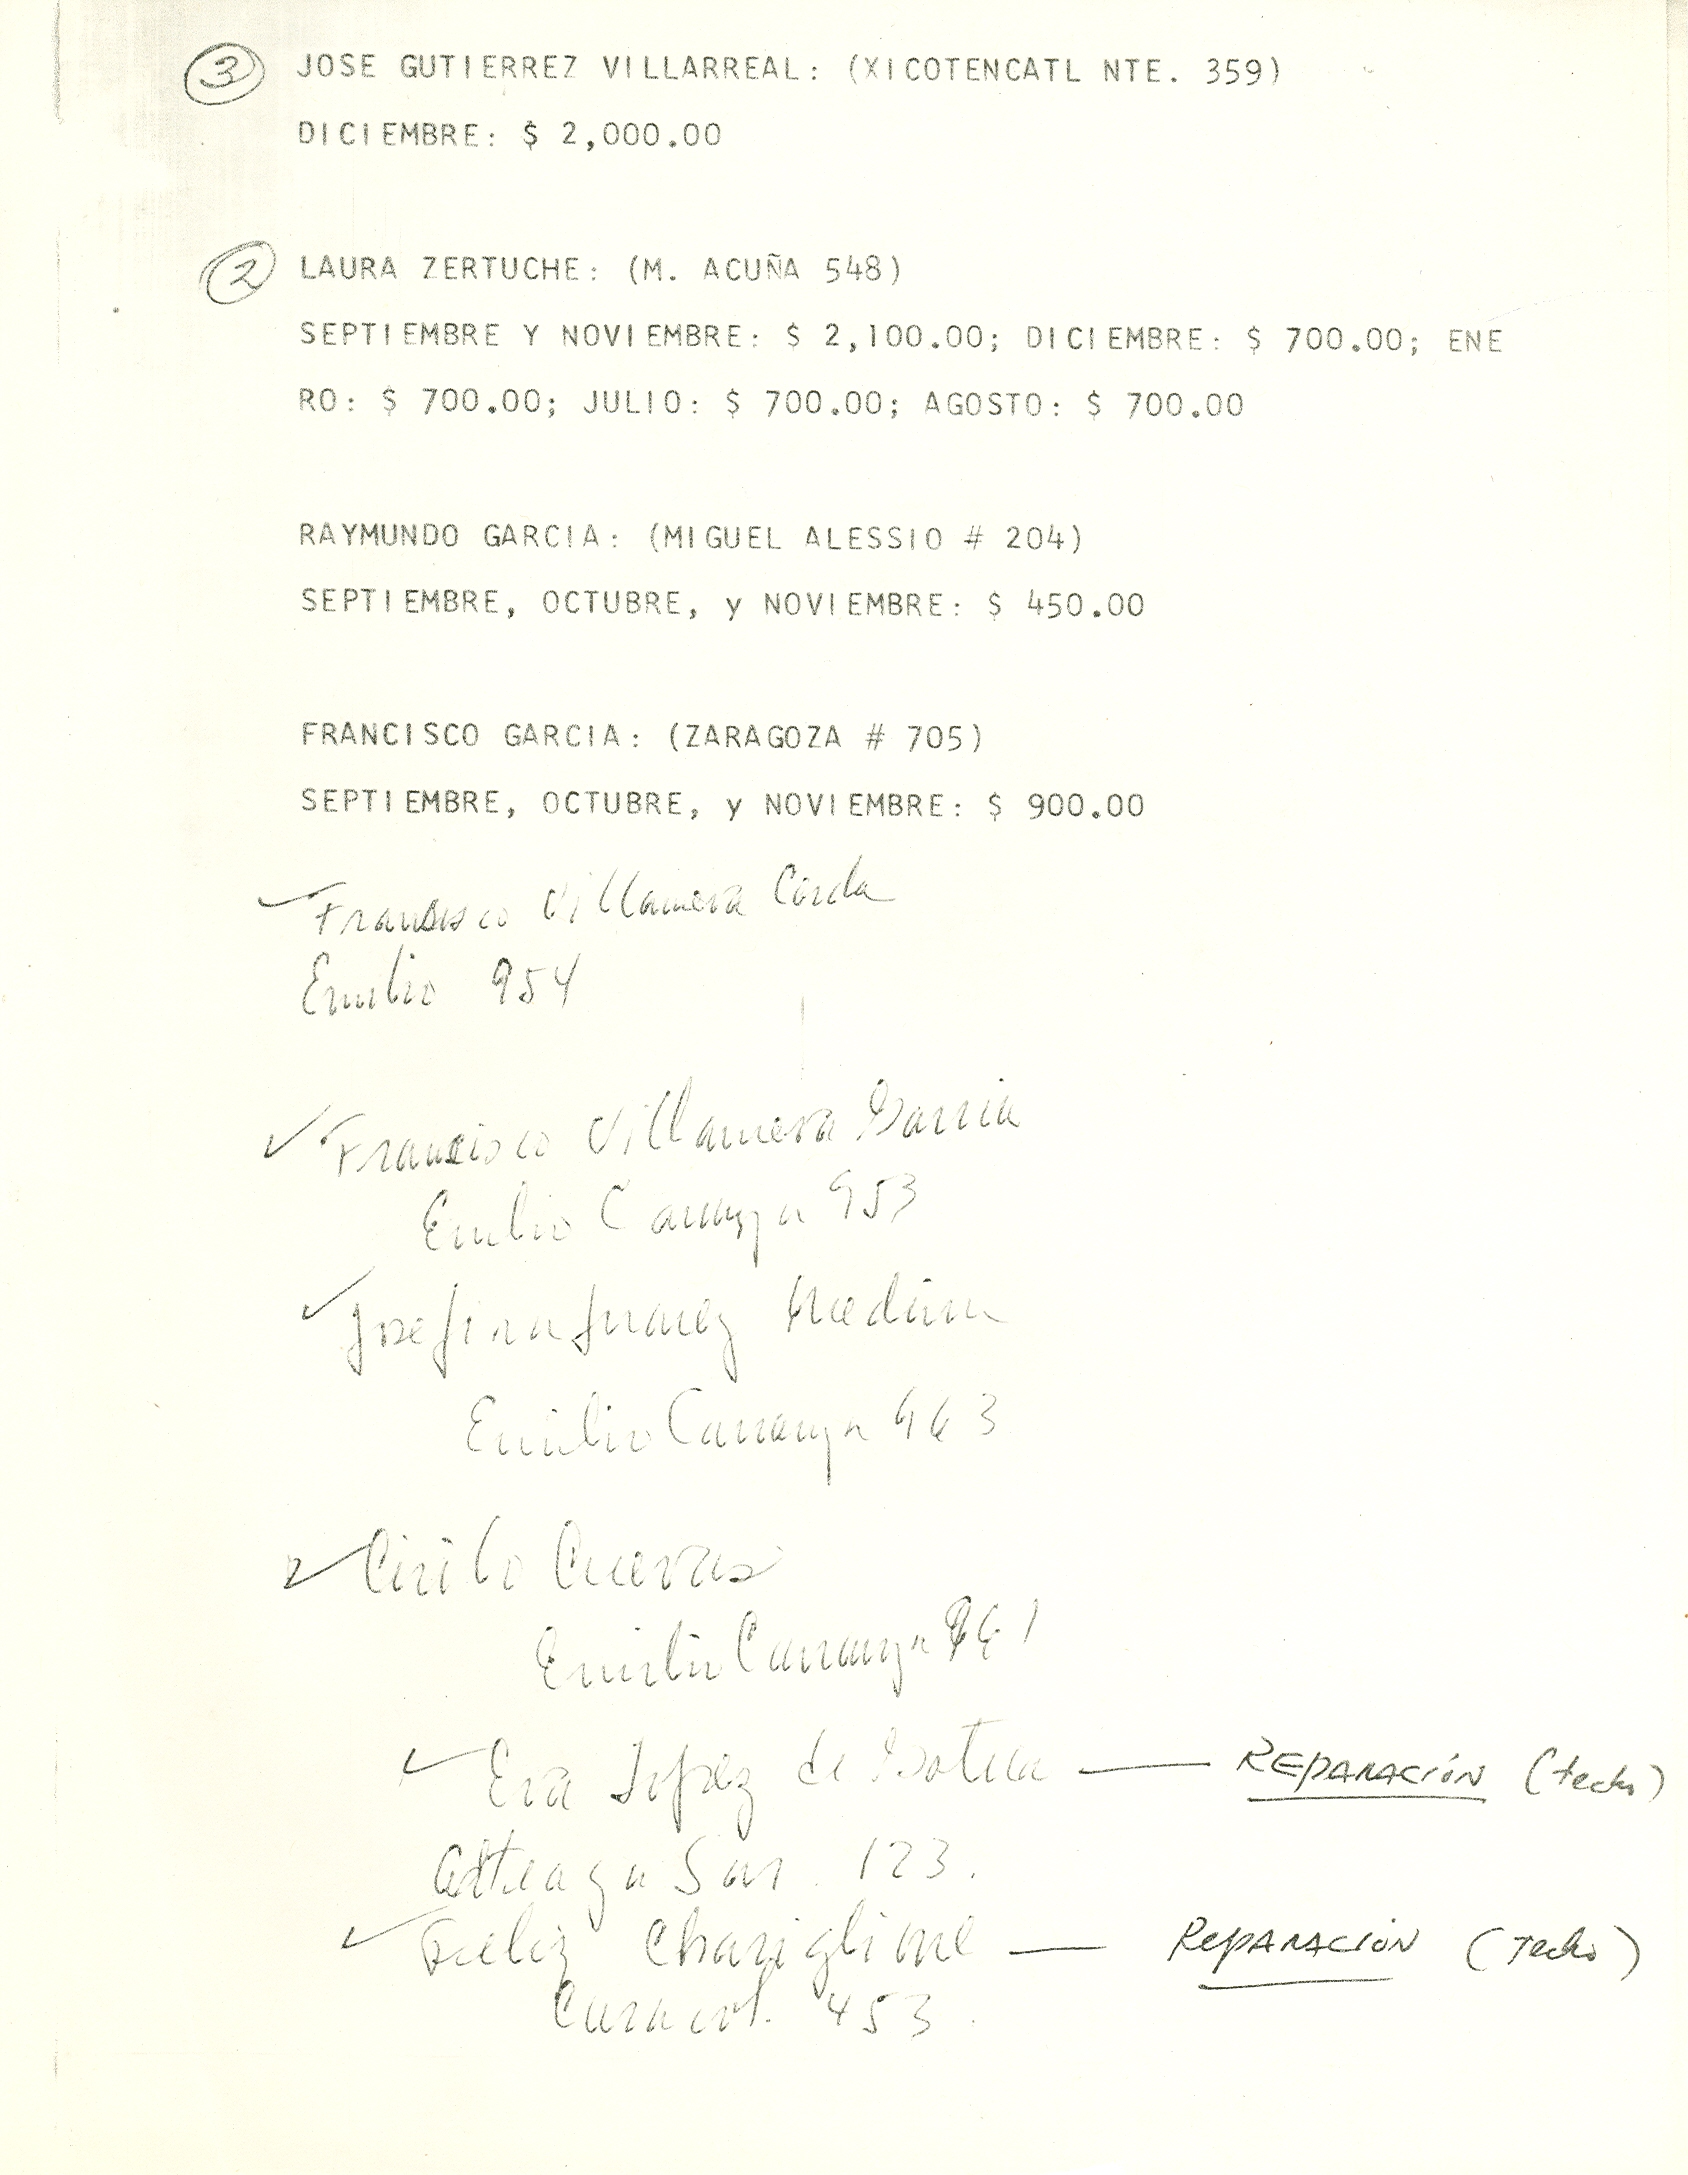 3 JOSE GUTIERREZ VILLARREAL: (XICOTENCATL NTE. 359)
DICIEMBRE: $ 2,000.00
2 LAURA ZERTUCHE: (M. ACUÑA 548)
SEPTIEMBRE Y NOVIEMBRE: $ 2,100.00; DICIEMBRE: $ 700.00; ENE
RO: $ 700.00; JULIO: $ 700.00; AGOSTO: $ 700.00
RAYMUNDO GARCIA: (MIGUEL ALESSIO # 204)
SEPTIEMBRE, OCTUBRE, y NOVIEMBRE: $ 450.00
FRANCISCO GARCIA: (ZARAGOZA # 705)
SEPTIEMBRE, OCTUBRE, y NOVIEMBRE: $ 900.00
✓ Francisco Villanueva
Emilio 954
✓ Francisco Villanueva Garcia
Emilio Carranza 953
✓ Josefina Juarez Medina
Emilio Carranza 963
✓ Cirilo Cuevas
Emilio Carranza 961
✓ Eva Lopez de — REPARACIÓN (techo)
Arteaga Sur. 123.
✓ Feliz Chariglione — REPARACIÓN (Techo)
Caracol. 453.